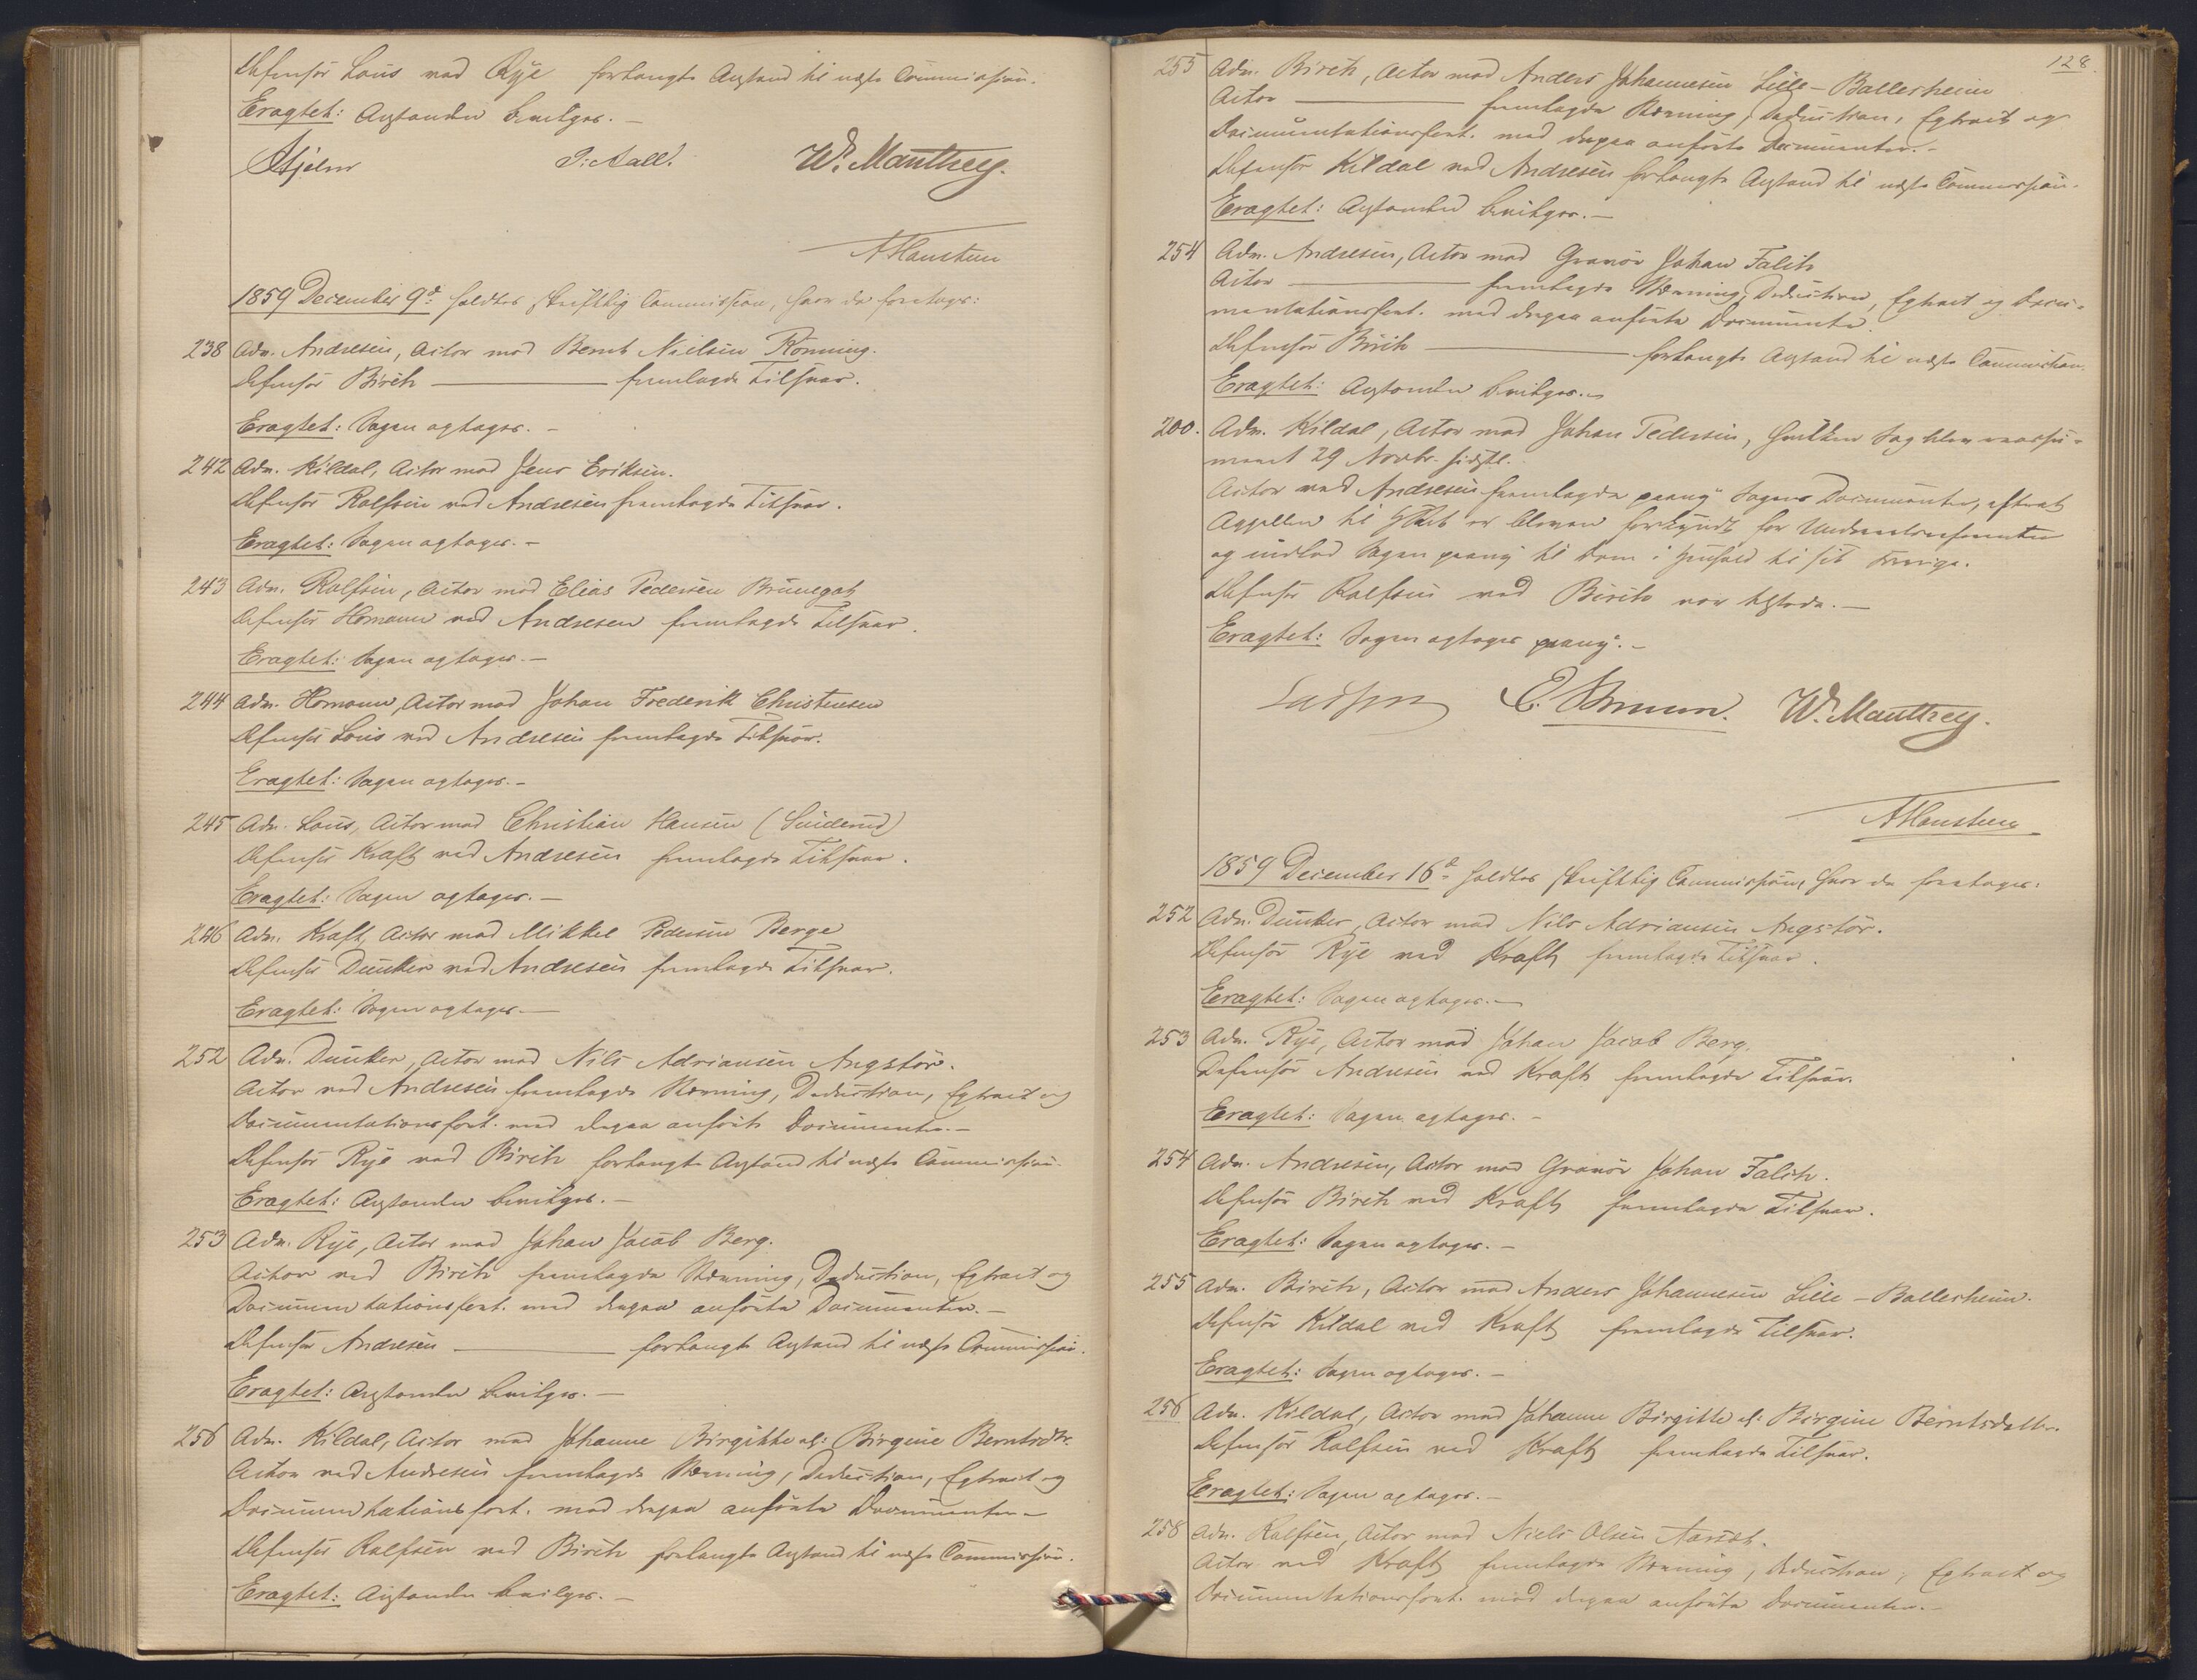 Defensor Lous ved Rye forlangte Anstand til næste Commission.
Eragtet: Anstanden bevilges. —
Hjelm J: Aall. W. Manthey.
AHansteen
1859 December 9de holdtes skriftlig Commission, hvor da foretages:
238 Adv. Andresen, Actor mod Bernt Nielsen Rønning.
Defensor Birch — fremlagde Tilsvar.
Eragtet: Sagen optages. -
242 Adv. Kildal, Actor mod Jens Eriksen.
Defensor Rolfsen ved Andresen fremlagde Tilsvar.
Eragtet: Sagen optages. -
243 Adv. Rolfsen, Actor mod Elias Pedersen Brunegat
Defensor Homann ved Andresen fremlagde Tilsvar.
Eragtet: Sagen optages. —
244 Adv. Homann, Actor mod Johan Frederik Christensen
Defensor Lous ved Andresen fremlagde Tilsvar.
Eragtet: Sagen optages. -
245 Adv. Lous, Actor mod Christian Hansen (Sinderud)
Defensor Kraft ved Andresen fremlagde Tilsvar.
Eragtet: Sagen optages. —
246 Adv. Kraft, Actor mod Mikkel Pedersen Berge
Defensor Dunker ved Andresen fremlagde Tilsvar.
Eragtet: Sagen optages. —
252 Adv. Dunker, Actor mod Nils Adriansen Angstør.
Actor ved Andresen fremlagde Stævning, Deduction, Extract og
Documentationsfort. med derpaa anførte Documenter. —
Defensor Rye ved Birch forlangte Anstand til næste Commission.
Eragtet: Anstanden bevilges. —
253 Adv. Rye, Actor mod Johan Jacob Berg.
Actor ved Birch fremlagde Stævning, Deduction, Extract og
Documentationsfort. med derpaa anførte Documenter. —
Defensor Andresen — forlangte Anstand til næste Commission.
Eragtet: Anstanden bevilges. —
256 Adv. Kildal, Actor mod Johanne Birgitte el: Birgine Berntsdtr.
Actor ved Andresen fremlagde Stævning, Deduction, Extract og
Documentationsfort. med derpaa anførte Documenter —
Defensor Rolfsen ved Birch forlangte Anstand til næste Commission.
Eragtet: Anstanden bevilges. —
128.
255 Adv. Birch, Actor mod Anders Johannesen Lille-Ballesheim
Actor — fremlagde Stævning, Deduction, Extract og
Documentationsfort. med derpaa anførte Documenter. -
Defensor Kildal ved Andresen forlangte Anstand til næste Commission.
Eragtet: Anstanden bevilges. —
254 Adv. Andresen, Actor mod Gravør Johan Falch
Actor — fremlagde Stævning, Deduction, Extract og Docu-
mentationsfort. med derpaa anførte Documenter.
Defensor Birch — forlangte Anstand til næste Commission.
Eragtet: Anstanden bevilges. -
200. Adv. Kildal, Actor mod Johan Pedersen, hvilken Sag blev
29 Novbr. sidstl.
Actor ved Andresen fremlagde paany Sagens Documenter, efterat
Appellen til er bleven forkyndt for
og indlod Sagen paany til Dom i Henhold til sit Forrige.
Defensor Rolfsen ved Birch var tilstede. —
Eragtet: Sagen optages paany. -
Lasson E. Bruun. W. Manthey.
AHansteen
1859 December 16de holdtes skriftlig Commission, hvor da foretages:
252 Adv. Dunker, Actor mod Nils Adriansen Angstør.
Defensor Rye ved Kraft fremlagde Tilsvar.
Eragtet: Sagen optages. —
253 Adv. Rye, Actor mod Johan Jacob Berg.
Defensor Andresen ved Kraft fremlagde Tilsvar.
Eragtet: Sagen optages. -
254 Adv. Andresen, Actor mod Gravør Johan Falch.
Defensor Birch ved Kraft fremlagde Tilsvar.
Eragtet: Sagen optages. -
255 Adv. Birch, Actor mod Anders Johannesen Lille-Ballesheim.
Defensor Kildal ved Kraft fremlagde Tilsvar.
Eragtet: Sagen optages. —
256 Adv. Kildal, Actor mod Johanne Birgitte el: Birgine Berntsdatter.
Defensor Rolfsen ved Kraft fremlagde Tilsvar.
Eragtet: Sagen optages. —
258 Adv. Rolfsen, Actor mod Niels Olsen Aarset.
Actor ved Kraft fremlagde Stævning, Deduction, Extract og
Documentationsfort. med derpaa anførte Documenter. —